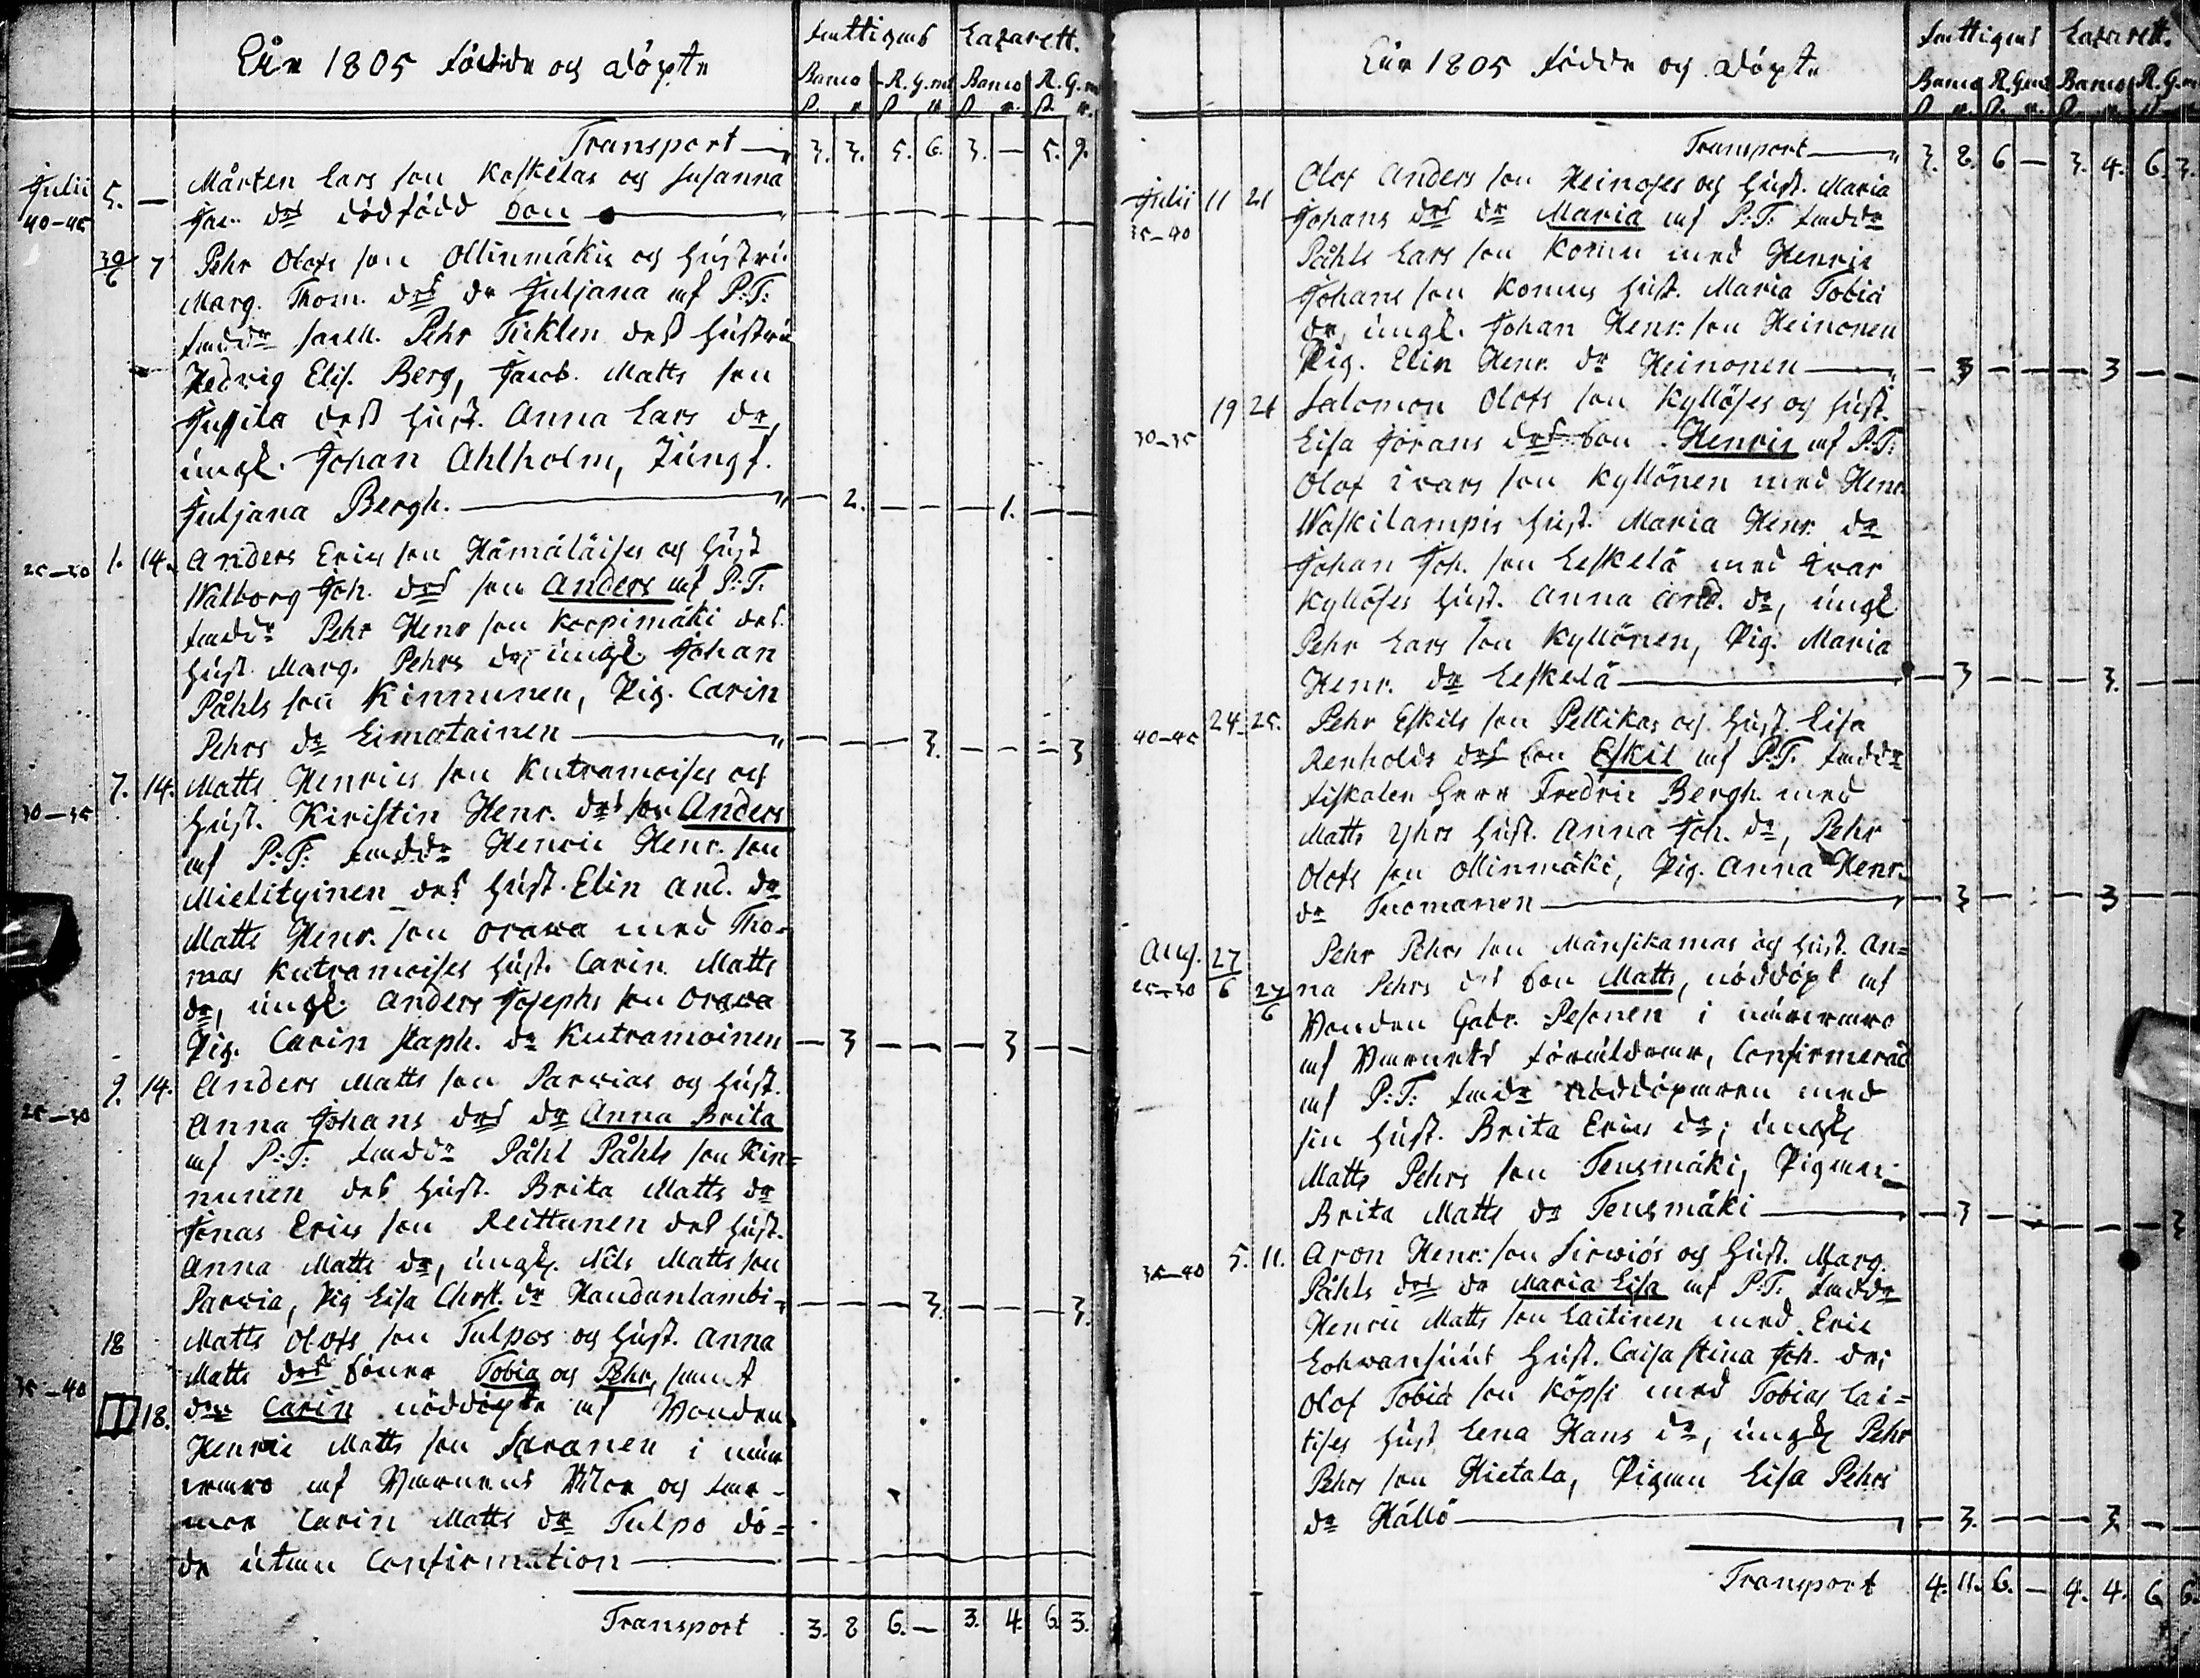 Åår 1805 födde og döpte
Fattigas Lazarett.
Banco R.G.md Banco R.G.m
Transport 3. 3. 5. 6. 3. — 5. 9.
Julii 5. — Mårten Lars son Koskelas og Susanna
40-45 Jac. drs dödfödd Son
30/6 7 Pehr Olofs son Ollinmäkis og hustru
Marg. Thom. drs dr Juljana af P:T:
faddr Pehr Ticklen des hustru
Hedvig Elis. Berg, Jacob Matts son
Jussila dess hust. Anna Lars dr,
ungk. Johan Ahlholm, Jungf.
Juljana Bergh. — 2. — — — 1. — —
25-30 1. 14. Anders Erics son Hämäläises og hust
Walborg Joh. drs son Anders af P:T.
faddr Pehr Henr son Korpimäki des
hust. Marg. Pehrs dr, ungk. Johan
Påhls son Kinnunen, Pig. Carin
Pehrs dr Leimatainen — — — 3. — — — 3
7. 14. Matts Henrics son Kutramoises og
30-35 hust. Kiristin Henr. drs son Anders
af P:T: faddr Henric Henr. son
Mielityinen des hust. Elin And. dr
Matts Henr. son Orawa med Tho-
mas Kutramoises hust. Carin Matts
dr, ungk. Anders Josephs son Orawa
Pig. Carin Staph. dr Kutramoinen — 3 — — — 3 — —
9. 14. Anders Matts son Parvias og hust.
25-30 Anna Johans drs dr Anna Brita
af P:T: faddr Påhl Påhls son Kin=
nunen des hust. Brita Matts dr
Jonas Erics son Reittunen des hust.
Anna Matts dr, ungk. Nils Matts son
Parvia, Pig Lisa Christ. dr Haudanlambi — — — 3. — — — 3.
18 Matts Olofs son Tulpos og hust. Anna
35-40 Matts drs Söner Tobia og Pehr, samt
18. dr Carin nöddöpte af Bonden
Henric Matts son Saranen i när
waro af Barnens Mor og far-
mor Carin Matts dr Tulpo dö=
de utan Confirmation
Transport 3. 8 6. — 3. 4. 6. 3.
Åår 1805 födde og döpte
Fattigas Lazarett.
Banco R.Gmd Banco R.G.m
Transport 3. 8. 6 — 3. 4. 6. 3.
Julii 11 21 Olof Anders son Heinoses og hust. Maria
35-40 Johans drs dr Maria af P:T: faddr
Påhls Lars son Komu med Henric
Johans son Komus hust. Maria Tobia
dr, ungk. Johan Henr. son Heinonen
Pig. Elin Henr. dr Heinonen — 3 — — — 3 — —
19 21 Salomon Olofs son Kyllöses og hust.
30-35 Lisa Görans drs Son Henric af P:T:
Olof Ivars son Kyllönen med Henr.
Waskilampis hust. Maria Henr. dr
Johan Joh. son Leskelä med Ivar
Kyllöses hust. Anna And. dr, ungk
Pehr Lars son Kyllönen, Pig. Maria
Henr. dr Leskelä — 3 — — — 3. — —
40-45 24 25. Pehr Eskils son Pellikas og hust. Lisa
Renholds drs Son Eskil af P:T. faddr
fiskalen Herr Fredric Bergh. med
Matts Yhrs hust. Anna Joh. dr, Pehr
Olofs son Ollinmäki, Pig. Anna Henr.
dr Tuomanen — 3 — — — 3 — —
Aug. 27/6 Pehr Pehrs son Mansikamas og hust. An=
25-30 27/6 na Pehrs drs Son Matts, nöddöpt af
Bonden Gabr. Pesonen i närwaro
af Barnets föräldrar, Confirmerad
af P:T: fadr Nöddöparen med
sin hust. Brita Erics dr; ungk
Matts Pehrs son Tensmäki, Pigan
Brita Matts dr Tensmäki — 3 — — — — — 3
35-40 5. 11. Aron Henr: son Sirviös og hust. Marg.
Påhls drs dr Maria Lisa af P:T. faddr
Henric Matts son Laitinen med Eric
Lohvansuus hust. Caisa Stina Joh. dr;
Olof Tobia son Köpsi med Tobias Lai=
tises hust Lena Hans dr, ungk Pehr
Pehrs son Hietala, Pigan Lisa Pehrs
dr Hällö — 3. — — — 3. — —
Transport 4. 11. 6. — 4. 4. 6 6.